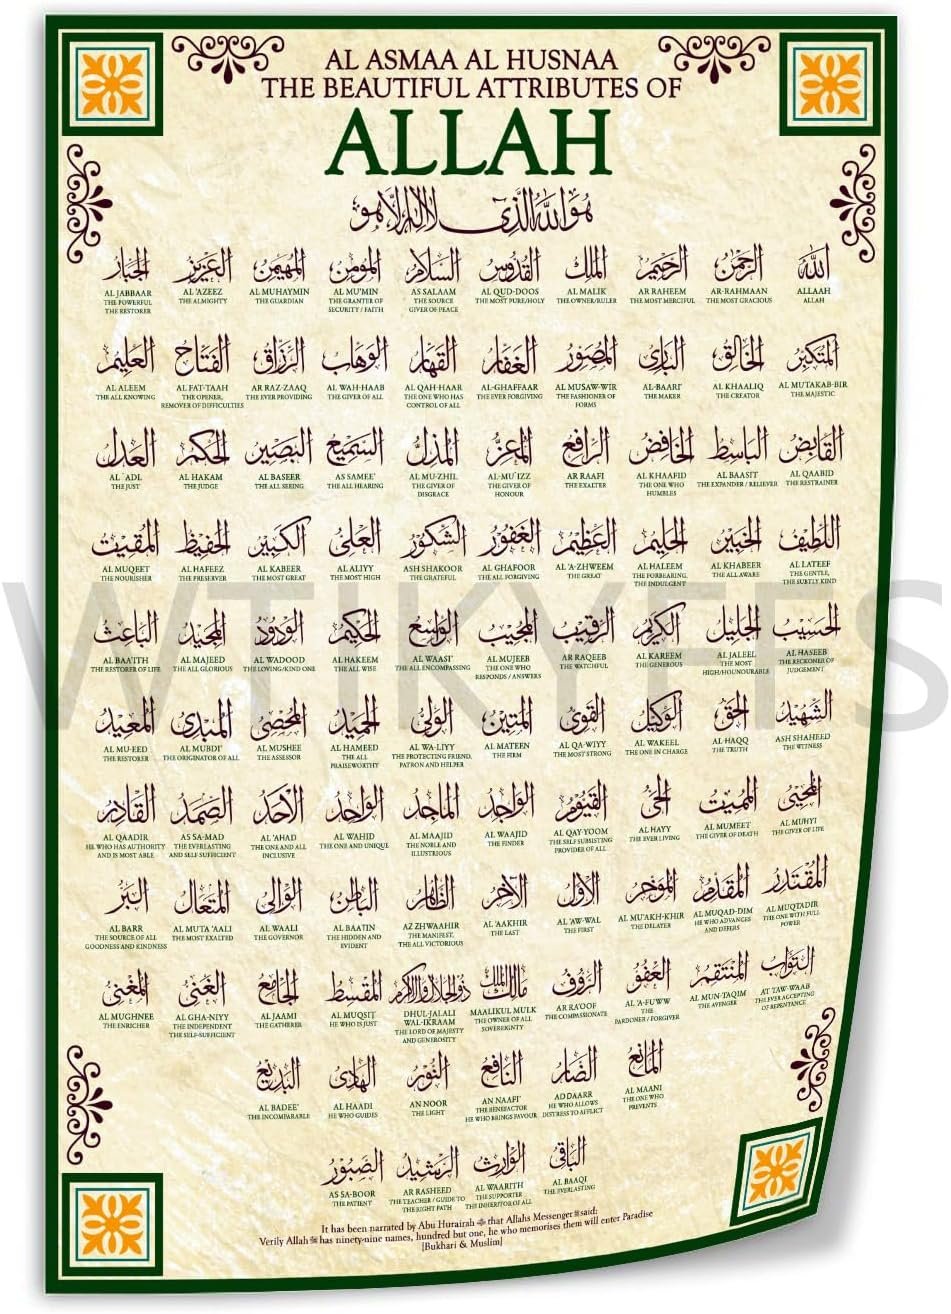 AL ASMAA AL HUSNAA
THE BEAUTIFUL ATTRIBUTES OF
ALLAH
هو الله الذي لا اله الا هو
الله
ALLAAH
ALLAH
الرحمن
AR-RAHMAAN
THE MOST GRACIOUS
الرحيم
AR RAHEEM
THE MOST MERCIFUL
الملك
AL MALIK
THE OWNER/RULER
القدوس
AL QUD-DOOS
THE MOST PURE/HOLY
السلام
AS SALAAM
THE SOURCE
GIVER OF PEACE
المؤمن
AL MU'MIN
THE GRANTER OF
SECURITY / FAITH
المهيمن
AL MUHAYMIN
THE GUARDIAN
العزيز
AL 'AZEEZ
THE ALMIGHTY
الجبار
AL JABBAAR
THE POWERFUL
THE RESTORER
المتكبر
AL MUTAKAB-BIR
THE MAJESTIC
الخالق
AL KHAALIQ
THE CREATOR
البارئ
AL-BAARI'
THE MAKER
المصور
AL MUSAW-WIR
THE FASHIONER OF
FORMS
الغفار
AL-GHAFFAAR
THE EVER FORGIVING
القهار
AL QAH-HAAR
THE ONE WHO HAS
CONTROL OF ALL
الوهاب
AL WAH-HAAB
THE GIVER OF ALL
الرزاق
AR RAZ-ZAAQ
THE EVER PROVIDING
الفتاح
AL FAT-TAAH
THE OPENER,
REMOVER OF DIFFICULTIES
العليم
AL ALEEM
THE ALL KNOWING
القابض
AL QAABID
THE RESTRAINER
الباسط
AL BAASIT
THE EXPANDER / RELIEVER
الخافض
AL KHAAFID
THE ONE WHO
HUMBLES
الرافع
AR RAAFI
THE EXALTER
المعز
AL-MU'IZZ
THE GIVER OF
HONOUR
المذل
AL MU-ZHIL
THE GIVER OF
DISGRACE
السميع
AS SAMEE'
THE ALL HEARING
البصير
AL BASEER
THE ALL SEEING
الحكم
AL HAKAM
THE JUDGE
العدل
AL 'ADL
THE JUST
اللطيف
AL LATEEF
THE GENTLE,
THE SUBTLY KIND
الخبير
AL KHABEER
THE ALL AWARE
الحليم
AL HALEEM
THE FORBEARING,
THE INDULGENT
العظيم
AL 'A-ZHWEEM
THE GREAT
الغفور
AL GHAFOOR
THE ALL FORGIVING
الشكور
ASH SHAKOOR
THE GRATEFUL
العلي
AL ALIYY
THE MOST HIGH
الكبير
AL KABEER
THE MOST GREAT
الحفيظ
AL HAFEEZ
THE PRESERVER
المقيت
AL MUQEET
THE NOURISHER
الحسيب
AL HASEEB
THE RECKONER OF
JUDGEMENT
الجليل
AL JALEEL
THE MOST
HIGH/HOUNOURABLE
الكريم
AL KAREEM
THE GENEROUS
الرقيب
AR RAQEEB
THE WATCHFUL
المجيب
AL MUJEEB
THE ONE WHO
RESPONDS / ANSWERS
الواسع
AL WAASI'
THE ALL ENCOMPASSING
الحكيم
AL HAKEEM
THE ALL WISE
الودود
AL WADOOD
THE LOVING/KIND ONE
المجيد
AL MAJEED
THE ALL GLORIOUS
الباعث
AL BAA'ITH
THE RESTORER OF LIFE
الشهيد
ASH SHAHEED
THE WITNESS
الحق
AL-HAQQ
THE TRUTH
الوكيل
AL WAKEEL
THE ONE IN CHARGE
القوي
AL QA-WIYY
THE MOST STRONG
المتين
AL MATEEN
THE FIRM
الولي
AL WA-LIYY
THE PROTECTING FRIEND,
PATRON AND HELPER
الحميد
AL HAMEED
THE ALL
PRAISEWORTHY
المحصي
AL MUSHEE
THE ASSESSOR
المبدئ
AL MUBDI'
THE ORIGINATOR OF ALL
المعيد
AL MU-EED
THE RESTORER
المحيي
AL MUHYI
THE GIVER OF LIFE
المميت
AL MUMEET
THE GIVER OF DEATH
الحي
AL HAYY
THE EVER LIVING
القيوم
AL QAY-YOOM
THE SELF SUBSISTING
PROVIDER OF ALL
الواجد
AL WAAJID
THE FINDER
الماجد
AL MAAJID
THE NOBLE AND
ILLUSTRIOUS
الواحد
AL WAHID
THE ONE AND UNIQUE
الاحد
AL 'AHAD
THE ONE AND ALL
INCLUSIVE
الصمد
AS SA-MAD
THE EVERLASTING
AND SELF SUFFICIENT
القادر
AL QAADIR
HE WHO HAS AUTHORITY
AND IS MOST ABLE
المقتدر
AL MUQTADIR
THE ONE WITH FULL
POWER
المقدم
AL MUQAD-DIM
HE WHO ADVANCES
AND DEFERS
المؤخر
AL MU'AKH-KHIR
THE DELAYER
الاول
AL 'AW-WAL
THE FIRST
الاخر
AL 'AAKHIR
THE LAST
الظاهر
AZ ZHWAAHIR
THE MANIFEST,
THE ALL VICTORIOUS
الباطن
AL BAATIN
THE HIDDEN AND
EVIDENT
الوالي
AL WAALI
THE GOVERNOR
المتعال
AL MUTA 'AALI
THE MOST EXALTED
البر
AL BARR
THE SOURCE OF ALL
GOODNESS AND KINDNESS
التواب
AT TAW-WAAB
THE EVER ACCEPTING
OF REPENTANCE
المنتقم
AL MUN-TAQIM
THE AVENGER
العفو
AL 'A-FUWW
THE
PARDONER / FORGIVER
الرؤف
AR RA'OOF
THE COMPASSIONATE
مالك الملك
MAALIKUL MULK
THE OWNER OF ALL
SOVEREIGNTY
ذوالجلال والاكرام
DHUL-JALALI
WAL-IKRAAM
THE LORD OF MAJESTY
AND GENEROSITY
المقسط
AL MUQSIT
HE WHO IS JUST
الجامع
AL JAAMI
THE GATHERER
الغني
AL GHA-NIYY
THE INDEPENDENT
THE SELF-SUFFICIENT
المغني
AL MUGHNEE
THE ENRICHER
المانع
AL MAANI
THE ONE WHO
PREVENTS
الضار
AD DAARR
HE WHO ALLOWS
DISTRESS TO AFFLICT
النافع
AN NAAFI'
THE BENEFACTOR
HE WHO BRINGS FAVOUR
النور
AN NOOR
THE LIGHT
الهادي
AL HAADI
HE WHO GUIDES
البديع
AL BADEE'
THE INCOMPARABLE
الباقي
AL BAAQI
THE EVERLASTING
الوارث
AL WAARITH
THE SUPPORTER
THE INHERITOR OF ALL
الرشيد
AR RASHEED
THE TEACHER / GUIDE TO
THE RIGHT PATH
الصبور
AS SA-BOOR
THE PATIENT
It has been narrated by Abu Hurairah that Allahs Messenger ﷺ said:
Verily Allah has ninety-nine names, hundred but one, he who memorises them will enter Paradise
[Bukhari & Muslim]
WTIKYFFS